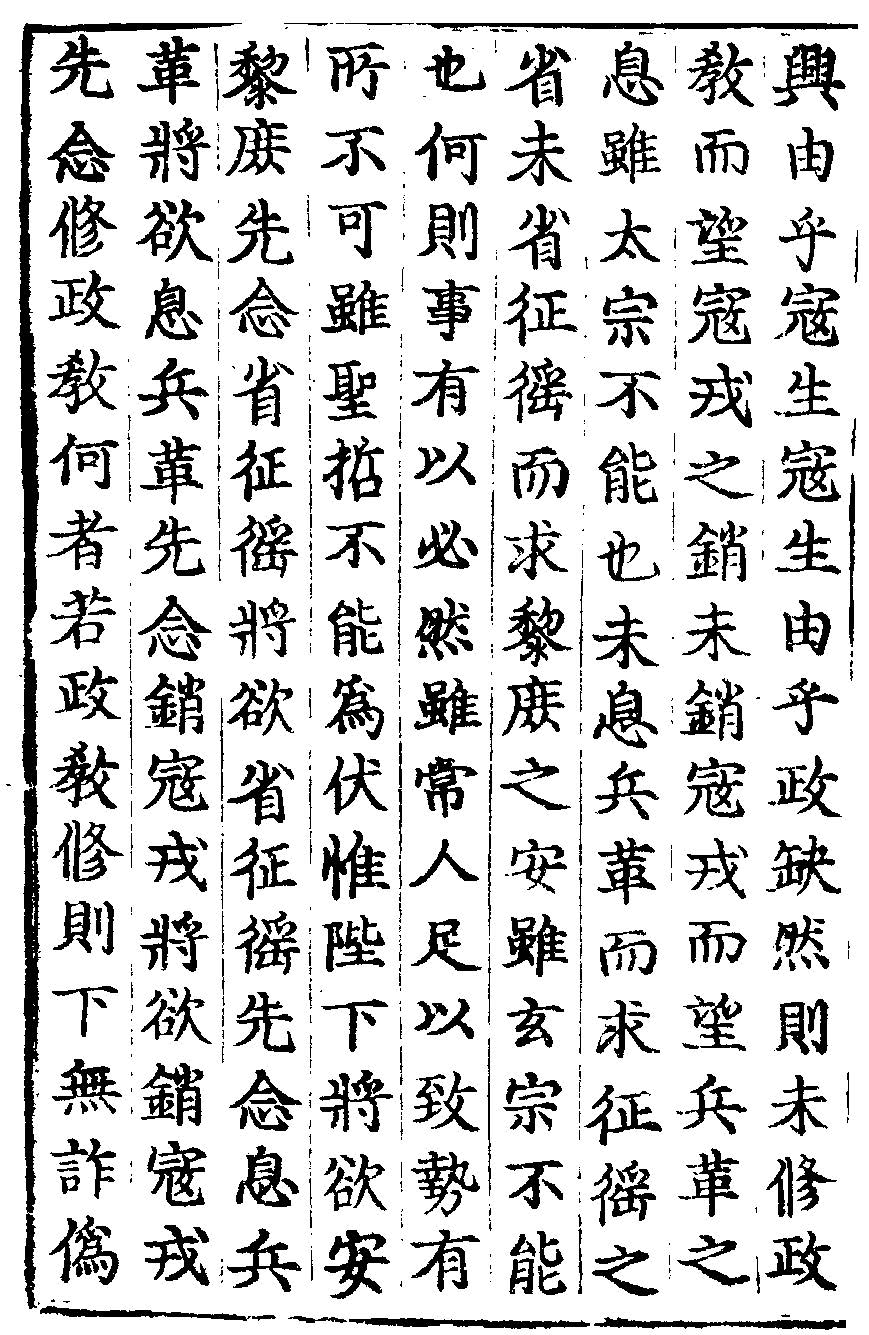 興由乎寇生寇生由乎政缺然則未修政
教而望寇戎之銷未銷寇戎而望兵革之
息雖太宗不能也未息兵革而求征徭之
省未省征徭而求黎庶之安雖玄宗不能
也何則事有以必然雖常人足以致勢有
所不可雖聖哲不能為伏惟陛下將欲安
黎庶先念省征徭將欲省征徭先念息兵
革將欲息兵革先念銷寇戎將欲銷寇戎
先念修政教何者若政教修則下無詐偽